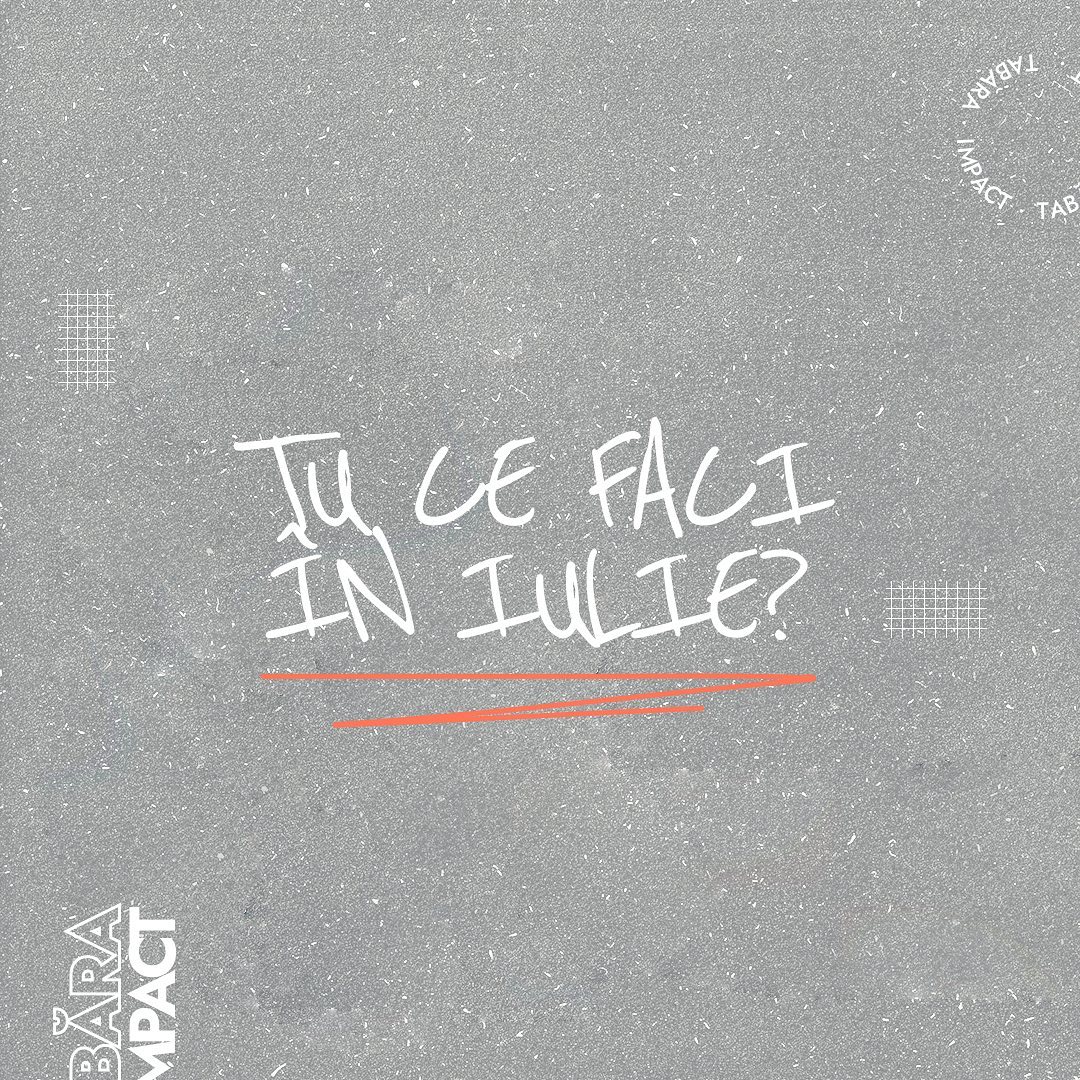 TABĂRA · IMPACT · TAB
TU CE FACI
ÎN IULIE?
BĂRA
MPACT